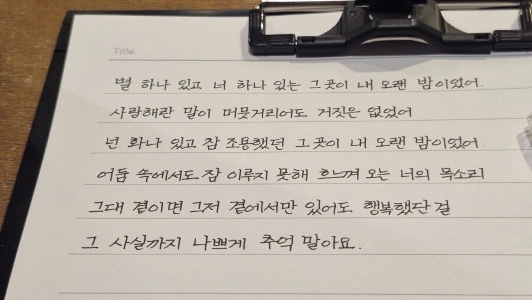 Title.
별 하나 있고 너 하나 있는 그곳이 내 오랜 밤이었어.
사랑해란 말이 머뭇거리어도 거짓은 없었어
넌 화나 있고 참 조용했던 그곳이 내 오랜 밤이었어
어둠 속에서도 잠 이루지 못해 흐느껴 오는 너의 목소리
그대 곁이면 그저 곁에서만 있어도 행복했단 걸
그 사실까지 나쁘게 추억 말아요.